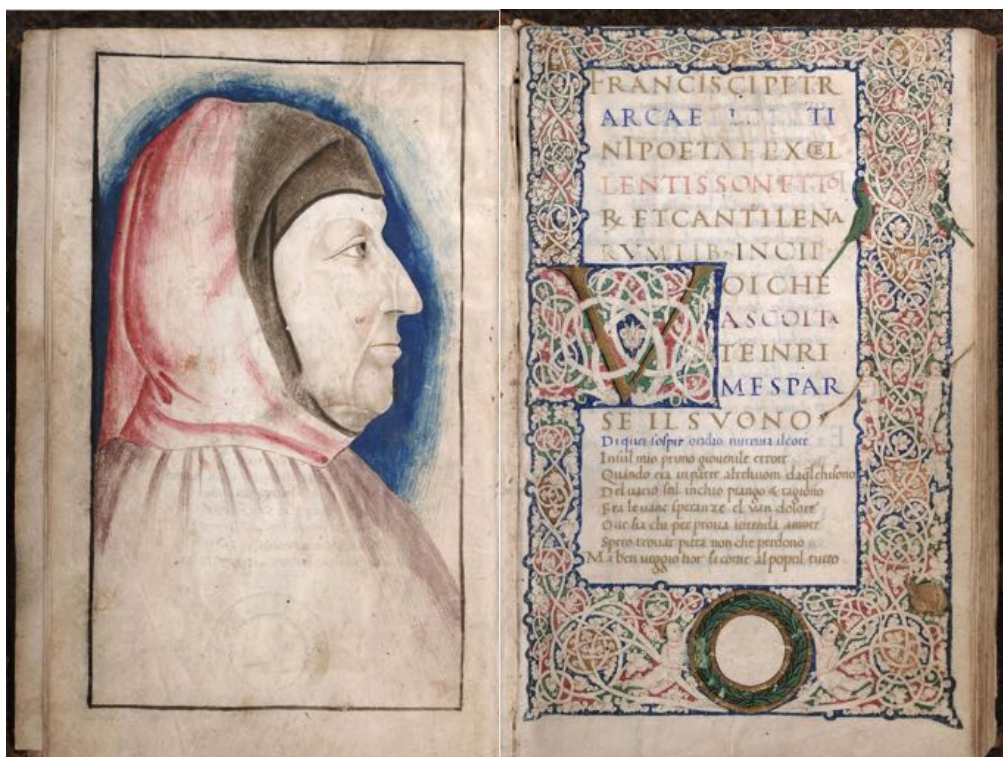 FRANCISCI PETR
ARCAE TI
NI POETAE EXCEL
LENTISS SONETTO
R ET CANTILENA
RVM LIB INCIP
VOI CHE
ASCOLTA
TE IN RI
ME SPAR
SE IL SVONO
Di quei sospir ondio nutriva il core
In sul mio primo giovenile errore
Quando era in parte altr huom da quel chi sono
Del vario stil in chio piango & ragiono
Fra le vane speranze el van dolore
Ove sia chi per prova intenda amore
Spero trovar pieta non che perdono
Ma ben veggio hor si come al popul tutto